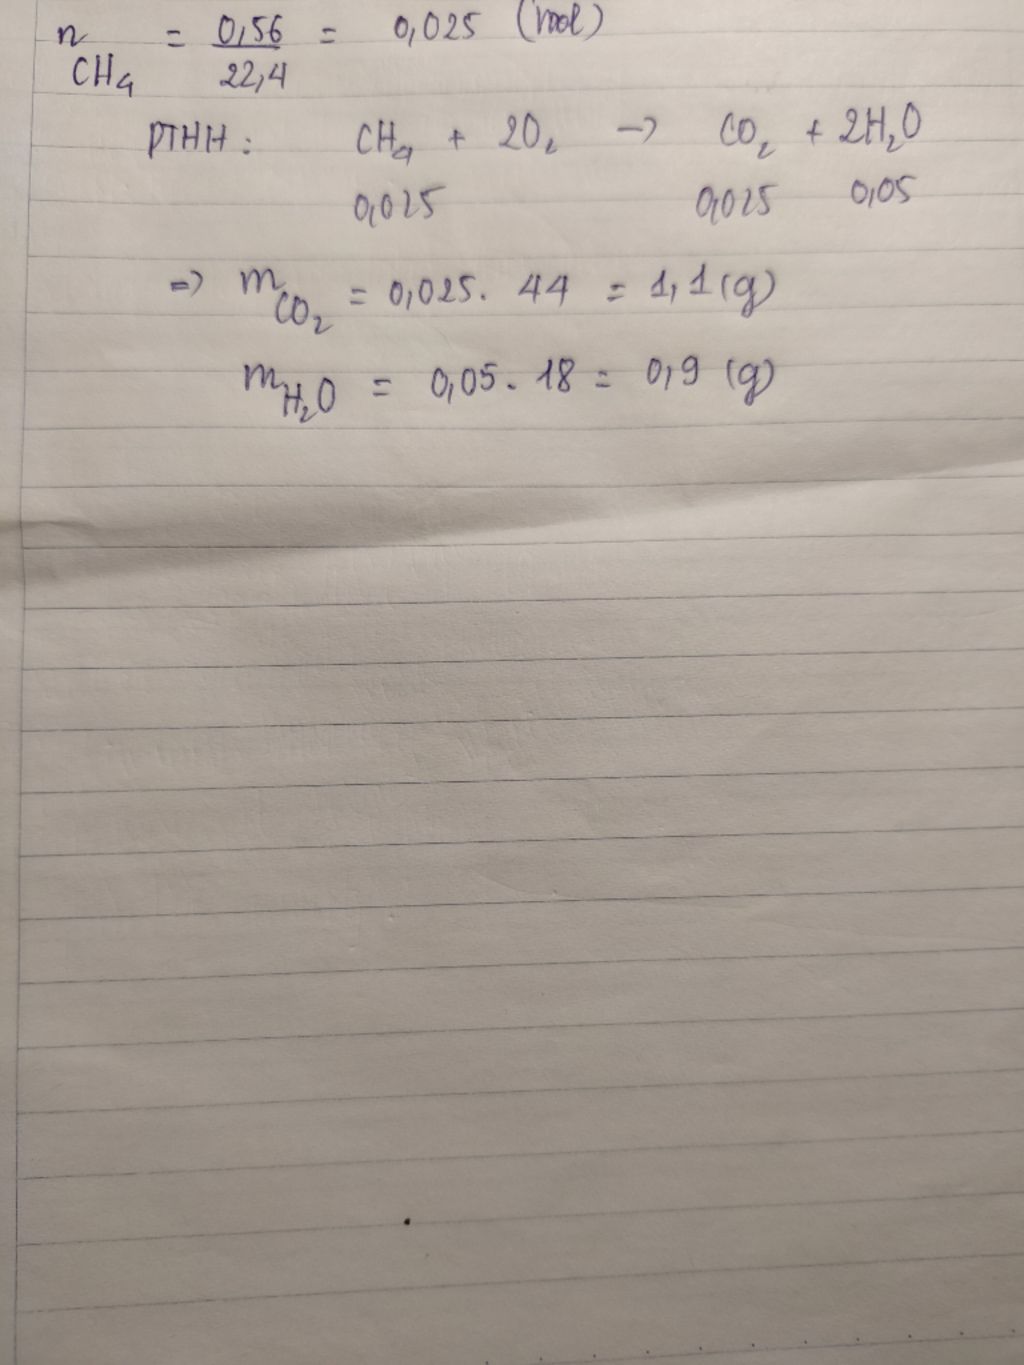 n CH₄ = 0,56 / 22,4 = 0,025 (mol)
PTHH: CH₄ + 2O₂ → CO₂ + 2H₂O
0,025 0,025 0,05
=> m CO₂ = 0,025. 44 = 1,1 (g)
m H₂O = 0,05. 18 = 0,9 (g)